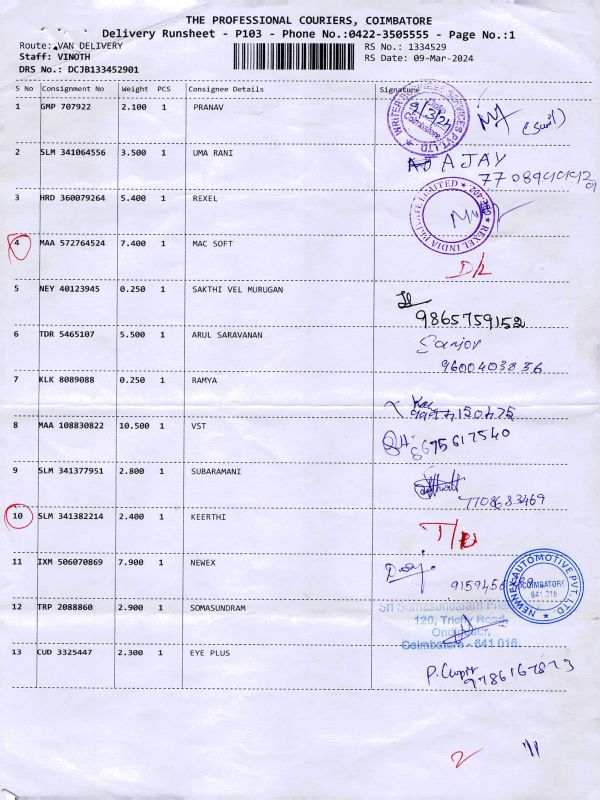 THE PROFESSIONAL COURIERS, COIMBATORE
Delivery Runsheet - P103 - Phone No.:0422-3505555 - Page No.:1
Route: VAN DELIVERY
Staff: VINOTH
DRS No.: DCJB133452901
RS No.: 1334529
RS Date: 09-Mar-2024
S No Consignment No Weight PCS Consignee Details Signature
1 GMP 707922 2.100 1 PRANAV
9/3/24
Coimbatore
2 SLM 341064556 3.500 1 UMA RANI
AJAY
3 HRD 360079264 5.400 1 REXEL
REXEL INDIA PRIVATE LIMITED
4 MAA 572764524 7.400 1 MAC SOFT
D/L
5 NEY 40123945 0.250 1 SAKTHI VEL MURUGAN
9865759152
6 TDR 5465107 5.500 1 ARUL SARAVANAN
Sanjoy
9600403836
7 KLK 8089088 0.250 1 RAMYA
8 MAA 108830822 10.500 1 VST
8675617540
9 SLM 341377951 2.800 1 SUBARAMANI
7708683469
10 SLM 341382214 2.400 1 KEERTHI
11 IXM 506070869 7.900 1 NEWEX
NEWNEX AUTOMOTIVE PVT. LTD
COIMBATORE
641 016
12 TRP 2088860 2.900 1 SOMASUNDRAM
Sri Somasundaram
120, Trichy Road,
Coimbatore - 641 016
13 CUD 3325447 2.300 1 EYE PLUS
9786167873
2
11